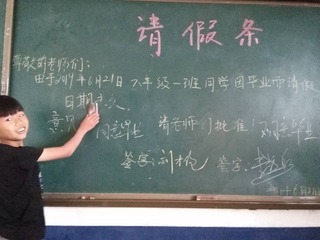 请假条
尊敬的老师们:
由于2019年6月21日 六年级一班同学因毕业而请假
日期永久.
意见 同意毕业 请老师们批准! 同意毕业
签字: 签字:
年6月